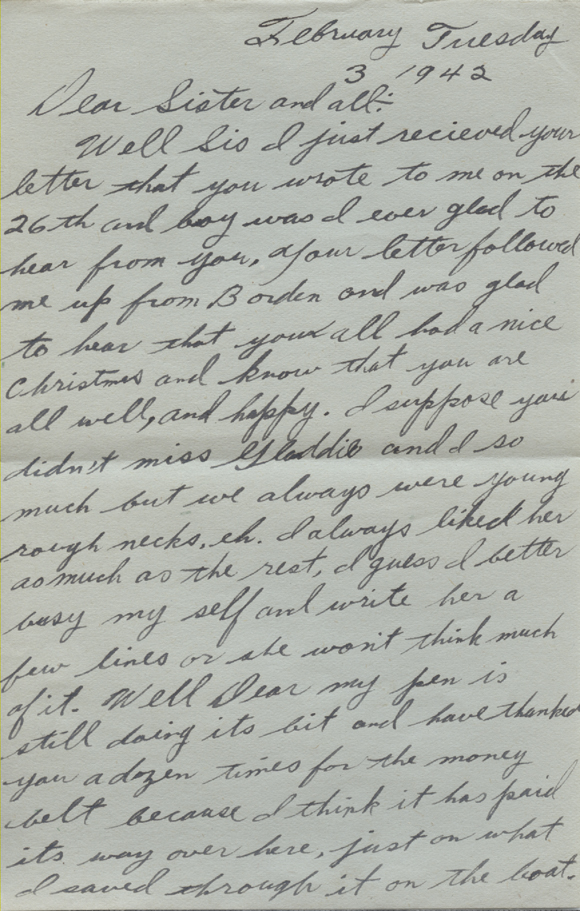 February Tuesday
3 1942
Dear Sister and all:-
Well Sis I just recieved your
letter that you wrote to me on the
26th and boy was I ever glad to
hear from you, Your letter followed
me up from Borden and was glad
to hear that your all had a nice
Christmas and know that you are
all well, and happy. I suppose you
didn't miss Gladdie and I so
much but we always were young
rough necks, eh. I always liked her
as much as the rest, I guess I better
busy my self and write her a
few lines or she won't think much
of it. Well Dear my pen is
still doing its bit and have thanked
you a dozen times for the money
belt because I think it has paid
its way over here, just on what
I saved through it on the boat.